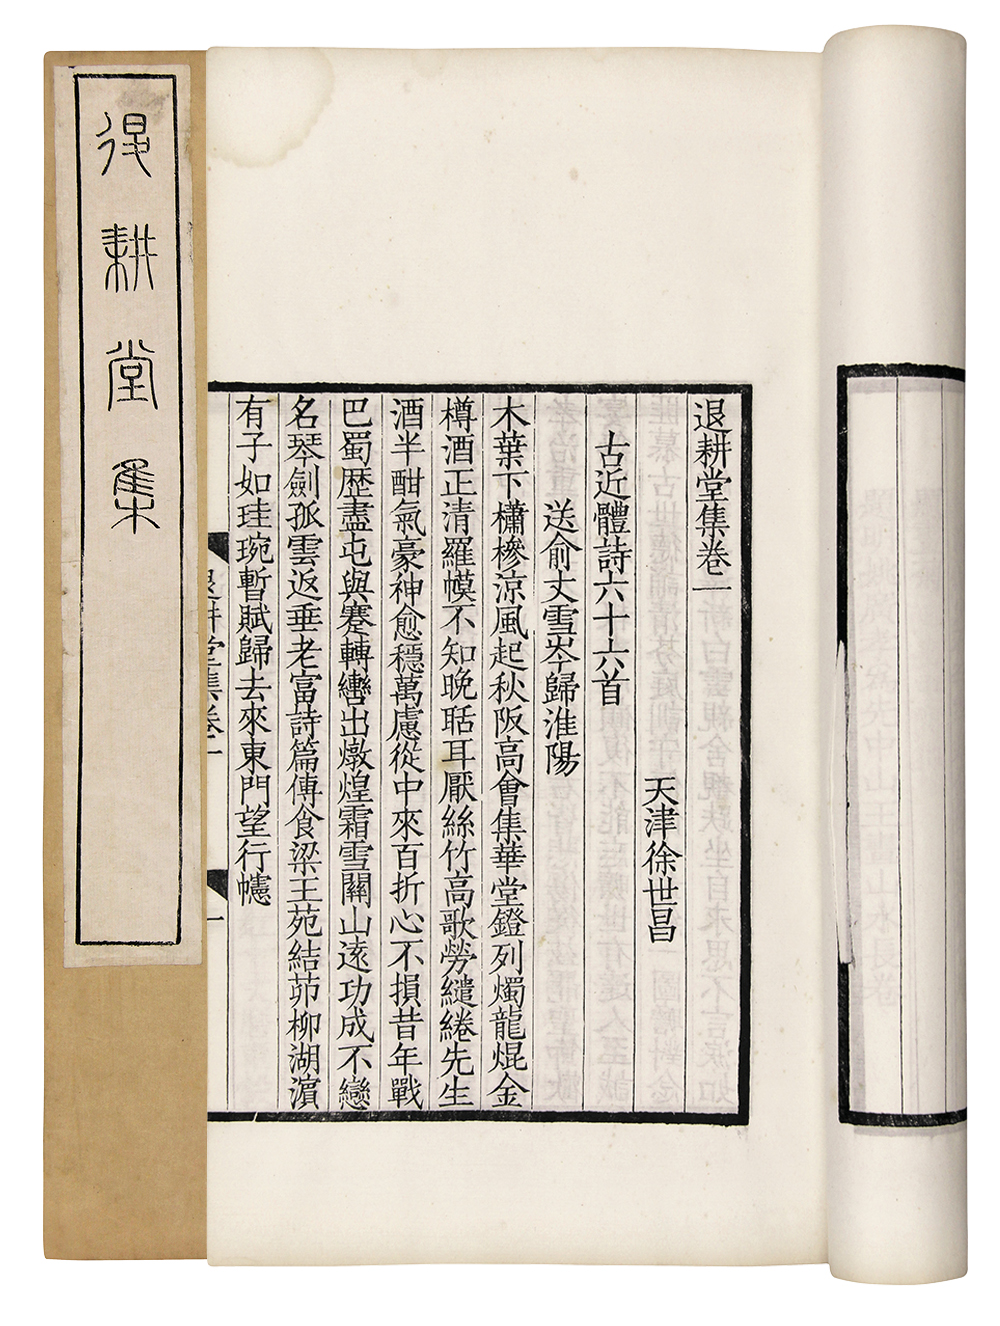 退耕堂集卷一
天津徐世昌
古近體詩六十六首
送俞丈雪岑歸淮陽
木葉下櫹槮涼風起秋阪高會集華堂鐙列燭龍焜金
樽酒正清羅幙不知晚聒耳厭絲竹高歌勞繾綣先生
酒半酣氣豪神愈穩萬慮從中來百折心不損昔年戰
巴蜀歷盡屯與蹇轉轡出燉煌霜雪關山遠功成不戀
名琴劍孤雲返垂老富詩篇傳食梁王苑結茆柳湖濵
有子如珪琬暫賦歸去來東門望行幰
退耕堂集卷一
一
退耕堂集